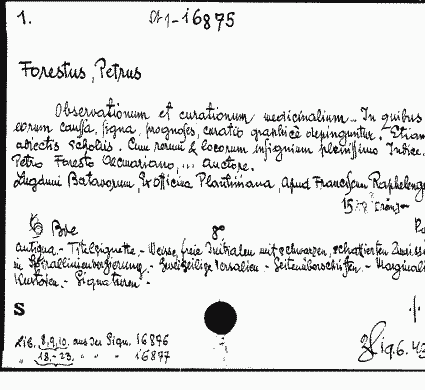 1. St 1-16875
Forestus, Petrus
Observationum et curationum medicinalium... In quibus
eorum caussae, signa, prognoses, curatio graphicè depinguntur. Etiam
adiectis scholiis. Cum rerum & locorum insignium plenissimo Indice.
Petro Foresto Alcmariano, ... Auctore.
Lugduni Batavorum, Ex officina Plantiniana, Apud Franciscum Raphelenge
15
8°
antiqua.- Titelvignette.- Weisse, freie Initialen mit schwarzen, schattierten
in Metallinienverzierung.- Zweizeilige Versalien.- Seitenüberschriften.- Marginali
Kustoden.- Signaturen.-
S
Lib. 8,9,10. aus der Sign. 16876
" 18.-23. " " " 16877
Lig. 6. 43